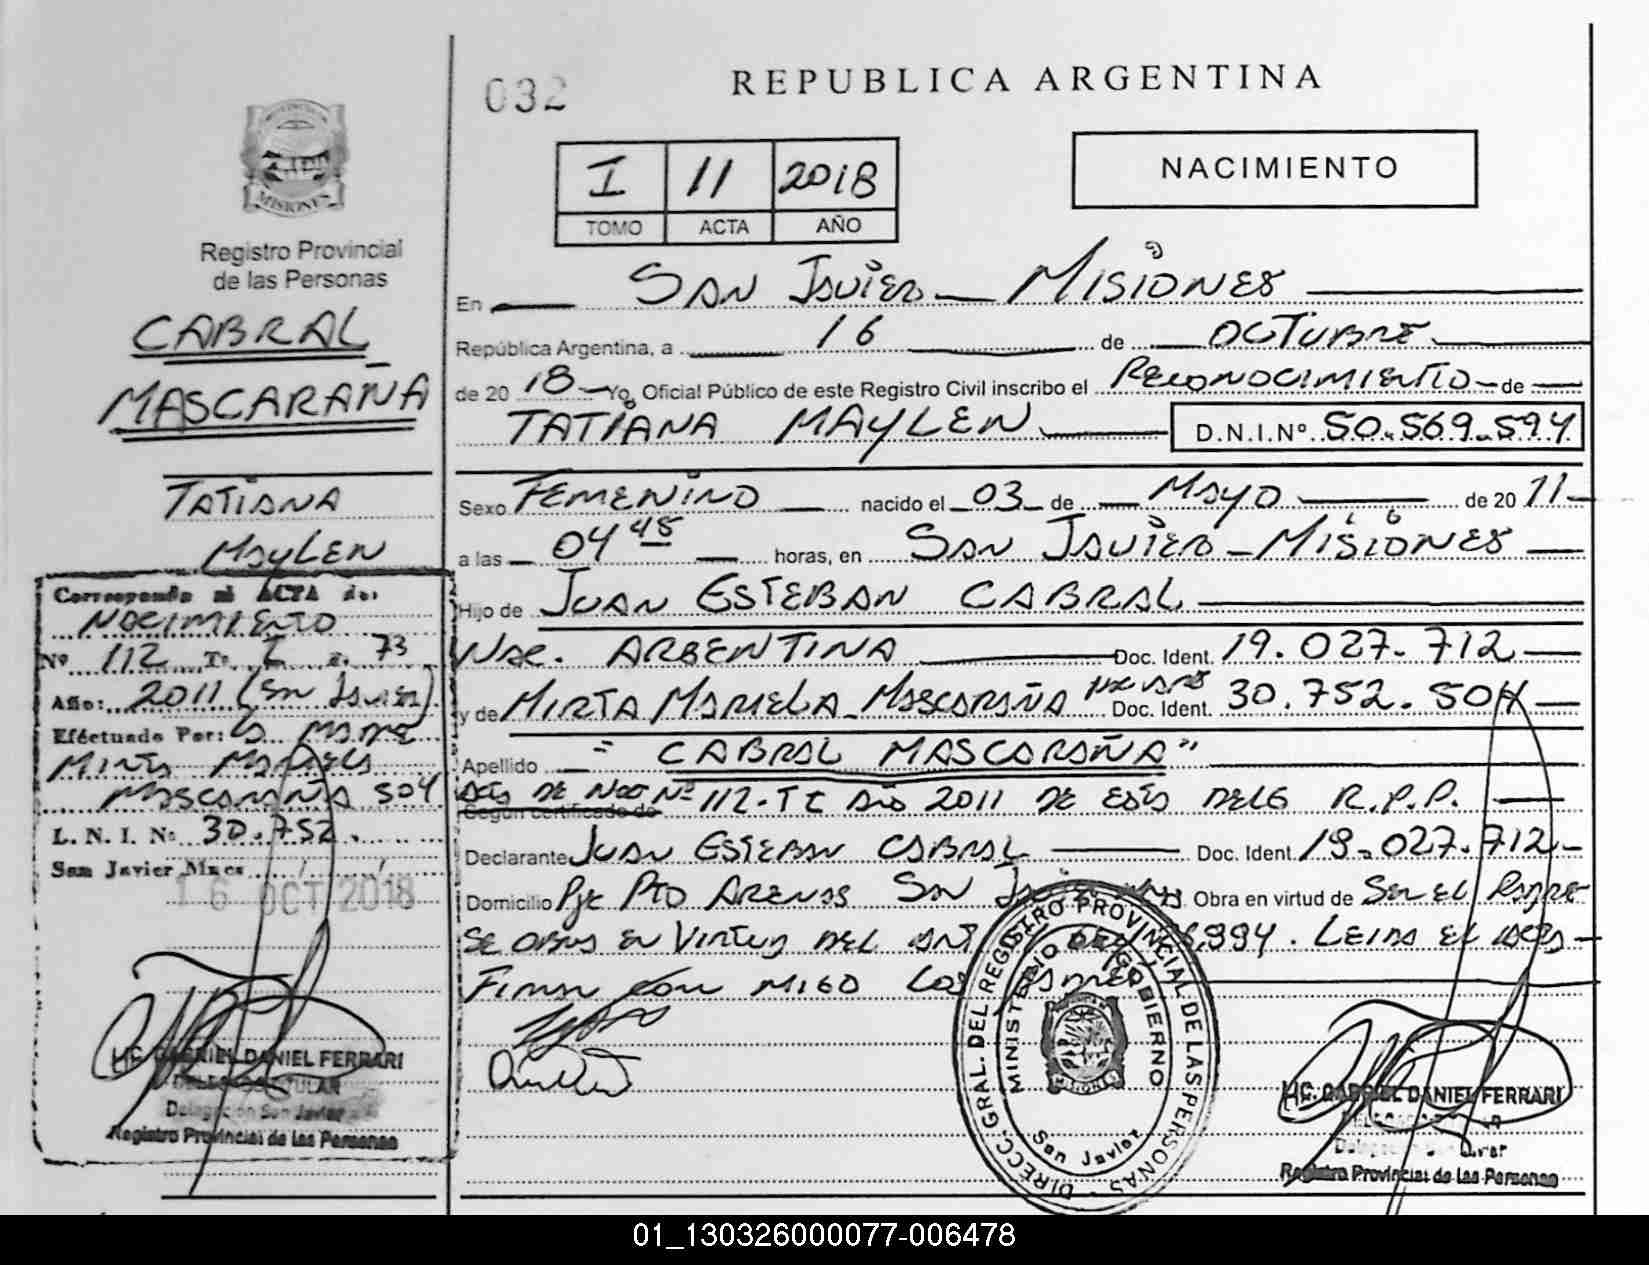 032
REPUBLICA ARGENTINA
I 11 2018
TOMO ACTA AÑO
NACIMIENTO
MISIONES
Registro Provincial
de las Personas
CABRAL
MASCARAÑA
TATIANA
MAYLEN
Corresponde al ACTA de:
NACIMIENTO
Nº 112 Tº I F. 73
Año: 2011 (San Javier)
Efectuado Por: La MADRE
MIRTA MARIELA
MASCARAÑA 504
L. N. I. Nº 30.752.
San Javier Mnes
16 OCT 2018
LIC. GABRIEL DANIEL FERRARI
DELEGADO TITULAR
Delegación San Javier
Registro Provincial de las Personas
En SAN JAVIER - MISIONES
República Argentina, a 16 de OCTUBRE
de 20 18 Yo, Oficial Público de este Registro Civil inscribo el RECONOCIMIENTO de
TATIANA MAYLEN D.N.I.Nº 50.569.594
Sexo FEMENINO nacido el 03 de MAYO de 20 11
a las 04 48 horas, en SAN JAVIER - MISIONES
Hijo de JUAN ESTEBAN CABRAL
Nac. ARGENTINA Doc. Ident. 19.027.712
y de MIRTA MARIELA MASCARAÑA Doc. Ident. 30.752.504
Apellido " CABRAL MASCARAÑA "
Según certificado de Nº 112. T I Año 2011 DE ESTA DELG R.P.P.
Declarante JUAN ESTEBAN CABRAL Doc. Ident 19.027.712
Domicilio Pje PTO ARENAS SAN Obra en virtud de
EN VIRTUD DEL 994. LEIDA EL ACTA
FIRMAN CON MIGO LOS
DIRECC. GRAL. DEL REGISTRO PROVINCIAL DE LAS PERSONAS
MINISTERIO DE GOBIERNO
MISIONES
San Javier
LIC. GABRIEL DANIEL FERRARI
Registro Provincial de las Personas
01_130326000077-006478